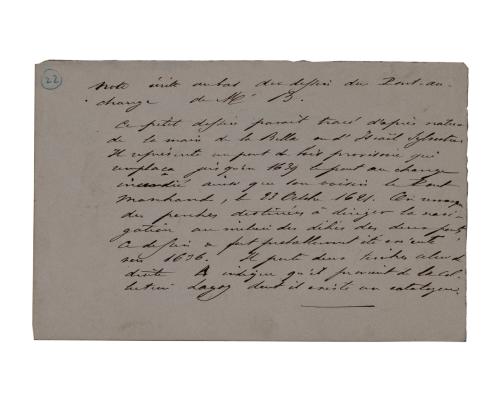 22
Note écrite au bas du dessin du Pont-au-
change de Mr B.
Ce petit dessin parait tracé d'après nature
de la main de la Bella ou d'Israël Sylvestre
Il représente un pont de bois provisoire qui
remplaça jusqu'en 1639 le pont au change
incendié ainsi que son voisin le Pont
Marchand, le 23 Octbre 1621. On
des perches destinées à diriger la navi-
gation au milieu des débris des deux ponts
Ce dessin a été
vers 1636. Il porte deux à
droite & indique qu'il provient de la col-
lection Lagoy dont il existe un catalogue.